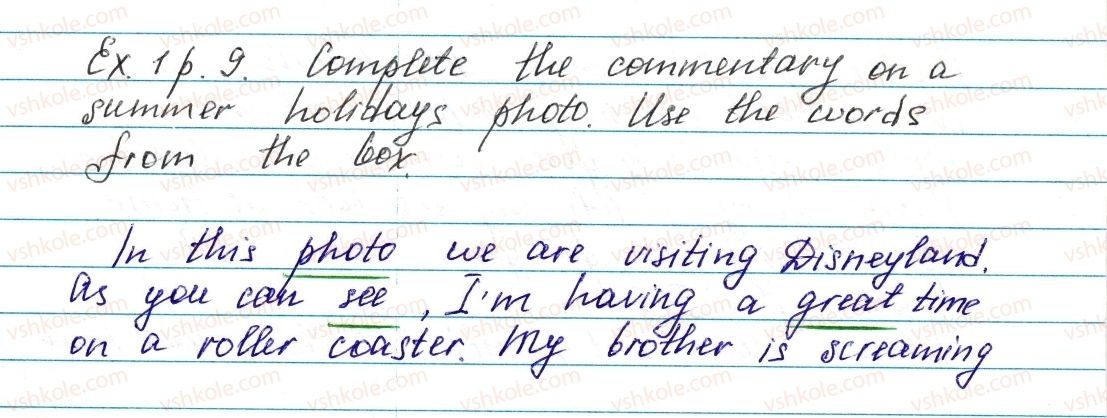 Ex. 1 p. 9. Complete the commentary on a
summer holidays photo. Use the words
from the box.
In this photo we are visiting Disneyland.
As you can see, I'm having a great time
on a roller coaster. My brother is screaming